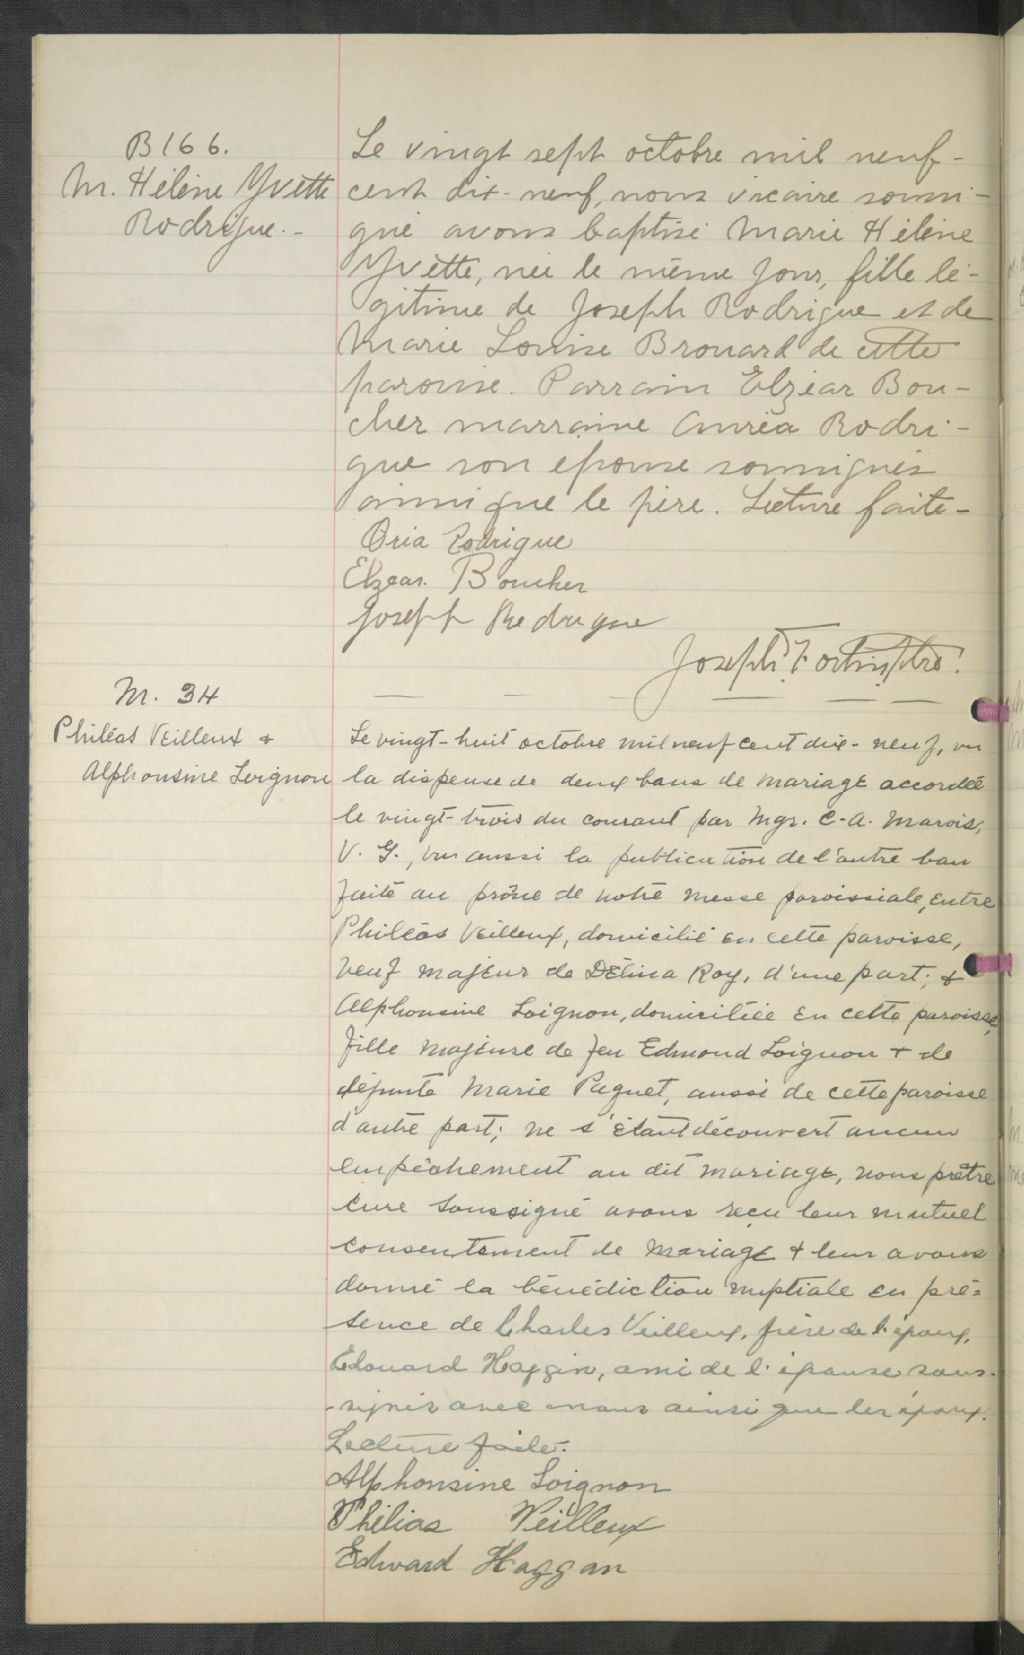 B 166.
M. Hélène Yvette
Rodrigue.-
Le vingt sept octobre mil neuf-
cent dix-neuf, nous vicaire soussi-
gné avons baptisé Marie Hélène
Yvette, née le même jour, fille lé-
gitime de Joseph Rodrigue et de
Marie Louise Brouard de cette
paroisse. Parrain Elzéar Bou-
cher marraine Auréa Rodri-
gue son épouse soussignés
ainsi que le père. Lecture faite-
Oria Rodrigue
Elzear. Boucher
Joseph Rodrigue
Joseph Fortin, ptre.
M. 34
Philéas Veilleux +
Alphonsine Loignon
Le vingt-huit octobre mil neuf cent dix-neuf, vu
la dispense de deux bans de mariage accordée
le vingt-trois du courant par Mgr. C.-A. Marois,
V. G., vu aussi la publication de l'autre ban
faite au prône de notre messe paroissiale, entre
Philéas Veilleux, domicilié en cette paroisse,
veuf majeur de Délina Roy, d'une part; &
Alphonsine Loignon, domiciliée en cette paroisse,
fille majeure de feu Edmond Loignon + de
défunte Marie Paquet, aussi de cette paroisse
d'autre part; ne s'étant découvert aucun
empêchement au dit mariage, nous prêtre
curé soussigné avons reçu leur mutuel
consentement de mariage & leur avons
donné la bénédiction nuptiale en pré=
sence de Charles Veilleux, frère de l'époux,
Edouard Haggin, ami de l'épouse sous-
-signés avec nous ainsi que les époux.
Lecture faite.
Alphonsine Loignon
Philias Veilleux
Edward Haggan